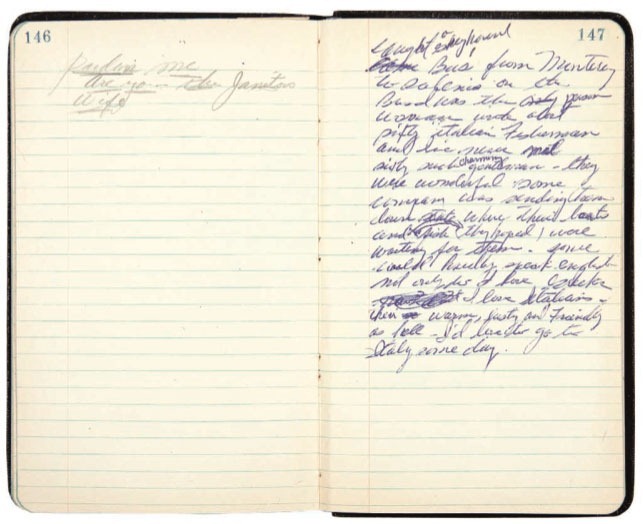 146
Pardon me
Are you the Janitors
Wife
147
caught a Greyhound
Bus from Monterey
to Salenis on the
Bus I was the only person
woman with about
sixty italian Fisherman
and I've never met
sixty such charming gentleman - they
were wonderful some
company was sending them
down state where their boats
and fish (they hoped) were
waiting for them - some
could hardly speak english
not only do I love Greeks
I love Italians -
they warm, lusty and friendly
as hell - I'd love to go to
Italy some day.